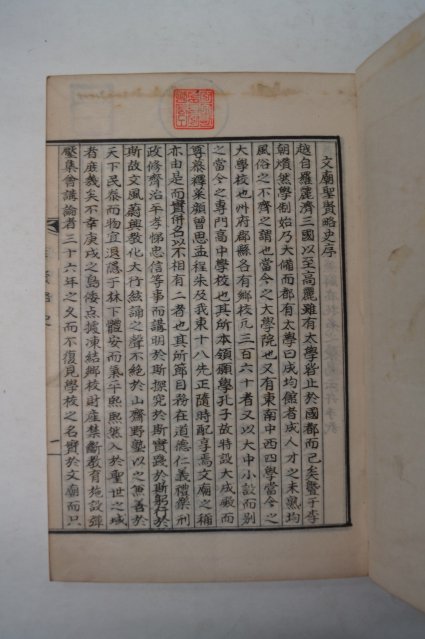 文廟聖賢略史序
越自羅麗濟三國以至高麗雖有太學砦止於國都而已矣曁于李
朝煥然學制始乃大備而都有太學曰成均館者成人才之未熟均
風俗之不齊之謂也當今之大學院也又有東南中西四學當今之
大學校也州府郡縣各有鄕校凡三百六十者又以大中小設而別
之當今之專門高中學校也其所本領願學孔子故特設大成殿而
尊奉釋菜顔曾思孟程朱及我東十八先正隨時配享焉文廟之稱
亦由是而實俱名以不相有二者也其所節目務在道德仁義禮樂刑
政修齊治平孝悌忠信等事而講明於斯探究於斯實踐於斯躬行於
斯故文風蔚興敎化大行絃誦之聲不絶於山齋野塾以之無吝於
天下民泰而物宜退隱于林下體安而氣平熙熙然入於聖世之域
者庶幾矣不幸庚戌之島倭占據凍結鄕校財產禁斷敎育施設彈
壓集會講論者三十六年之久而不復見學校之名實於文廟而只